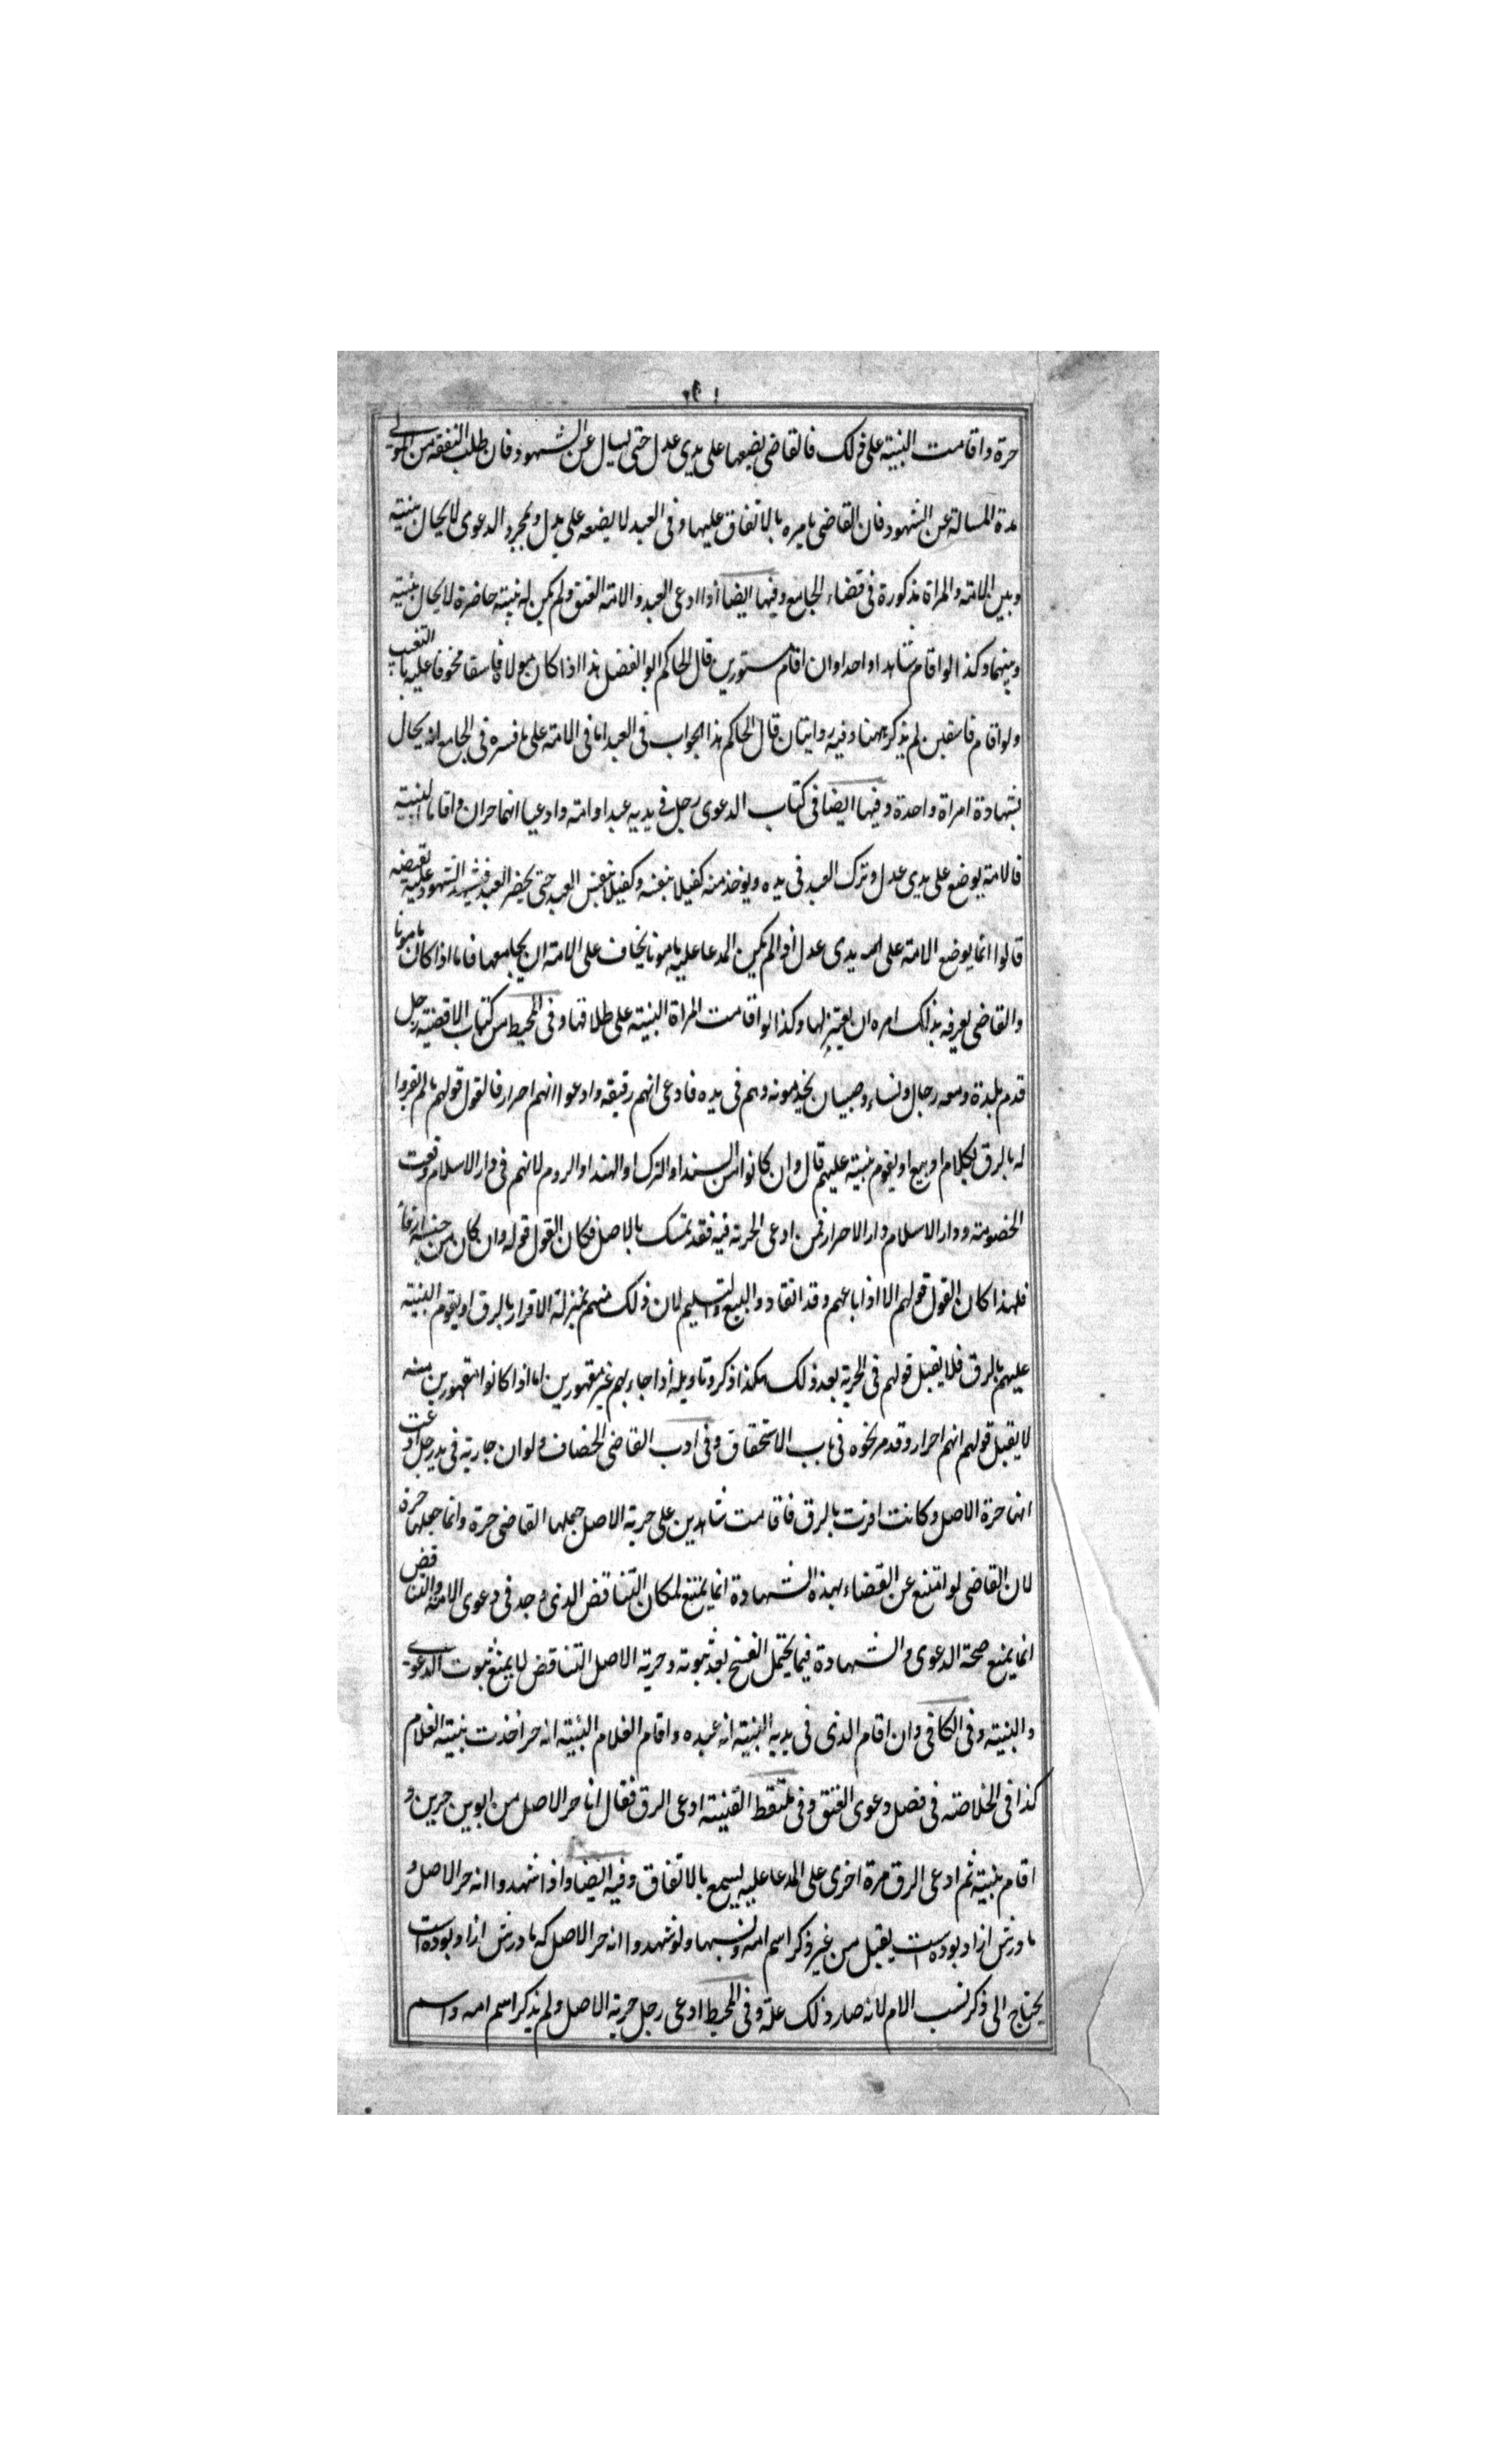 حرة واقامت البينة على ذلك فالقاضى يضعها على يدى عدل حتى يسال عن الشهود فان طلب النفقة من المولى
مدة المسالة عن الشهود فان القاضى يامره بالانفاق عليها وفى العبد لا يضعه على يدل وبمجرد الدعوى لا يحال بينه
وبين الامة والمراة مذكورة فى قضاء الجامع وفيها ايضا اذا ادعى العبد والامة العتق ولم يكن له بينة حاضرة لا يحال بينه
وبينهما وكذا لو اقام شاهدا واحدا وان اقام مستورين قال الحاكم ابو الفضل هذا اذا كان مولاه فاسقا مخوفا عليه بالتغيب
ولو اقام فاسقين لم يذكر ههنا وفيه روايتان قال الحاكم هذا الجواب فى العبد اما فى الامة على ما فسره فى الجامع انه يحال
بشهادة امراة واحدة وفيها ايضا فى كتاب الدعوى رجل فى يديه عبد او امة وادعيا انهما حران واقاما البينة
فالامة يوضع على يدى عدل وترك العبد فى يده ويوخذ منه كفيلا بنفسه وكفيلا بنفس العبد حتى يحضر العبد فيشهد الشهود عليه
قالوا انما يوضع الامة على يدى عدل اذا لم يكن المدعا عليه مامونا يخاف على الامة ان يجامعها فاما اذا كان مامونا
والقاضى يعرفه بذلك امره ان يعتزلها وكذا لو اقامت المراة البينة على طلاقها وفى المحيط من كتاب الاقضية رجل
قدم بلدة ومعه رجال ونساء وصبيان يخدمونه وهم فى يده فادعى انهم رقيقه وادعوا انهم احرار فالقول قولهم ما لم يقروا
له بالرق بكلام او بيع او يقوم بينة عليهم قال وان كانوا من السند او الترك او الهند او الروم لانهم فى دار الاسلام وقعت
الخصومة ودار الاسلام دار الاحرار فمن ادعى الحرية فيه فقد تمسك بالاصل فكان القول قوله وان كان من جنسه ارقاء
فلهذا كان القول قولهم الا اذا باعهم وقد انقادوا البيع والتسليم لان ذلك منهم بمنزلة الاقرار بالرق او يقوم البينة
عليهم بالرق فلا يقبل قولهم فى الحرية بعد ذلك هكذا ذكر وتاويله اذا جاء بهم غير مقهورين اما اذا كانوا مقهورين منه
لا يقبل قولهم انهم احرار وقد مر نحوه فى باب الاستحقاق وفى ادب القاضى الخصاف ولو ان جارية فى يد رجل ادعت
انها حرة الاصل وكانت اقرت بالرق فاقامت شاهدين على حرية الاصل جعلها القاضى حرة وانما جعلها حرة
لان القاضى لو امتنع عن القضاء بهذه الشهادة انما يمتنع لمكان التناقض الذى وجد فى دعوى الامة والتناقض
انما يمنع صحة الدعوى والشهادة فيما يحتمل الفسخ بعد ثبوته وحرية الاصل التناقض لا يمنع ثبوت الدعوى
والبينة وفى الكافى وان اقام الذى فى يديه البينة انه عبده واقام الغلام البينة انه حر اخذت بينة الغلام
كذا فى الخلاصة فى فصل دعوى العتق وفى ملتقط القنية ادعى الرق فقال انا حر الاصل من ابوين حرين و
اقام بينة ثم ادعى الرق مرة اخرى على المدعا عليه يسمع بالاتفاق وفيه ايضا واذا شهدوا انه حر الاصل و
مادرش ازاد بوده است يقبل من غير ذكر اسم امه ونسبها ولو شهدوا انه حر الاصل كه مادرش ازاد بوده است
يحتاج الى ذكر نسب الام لانه صار ذلك علة وفى المحيط ادعى رجل حرية الاصل ولم يذكر اسم امه واسم